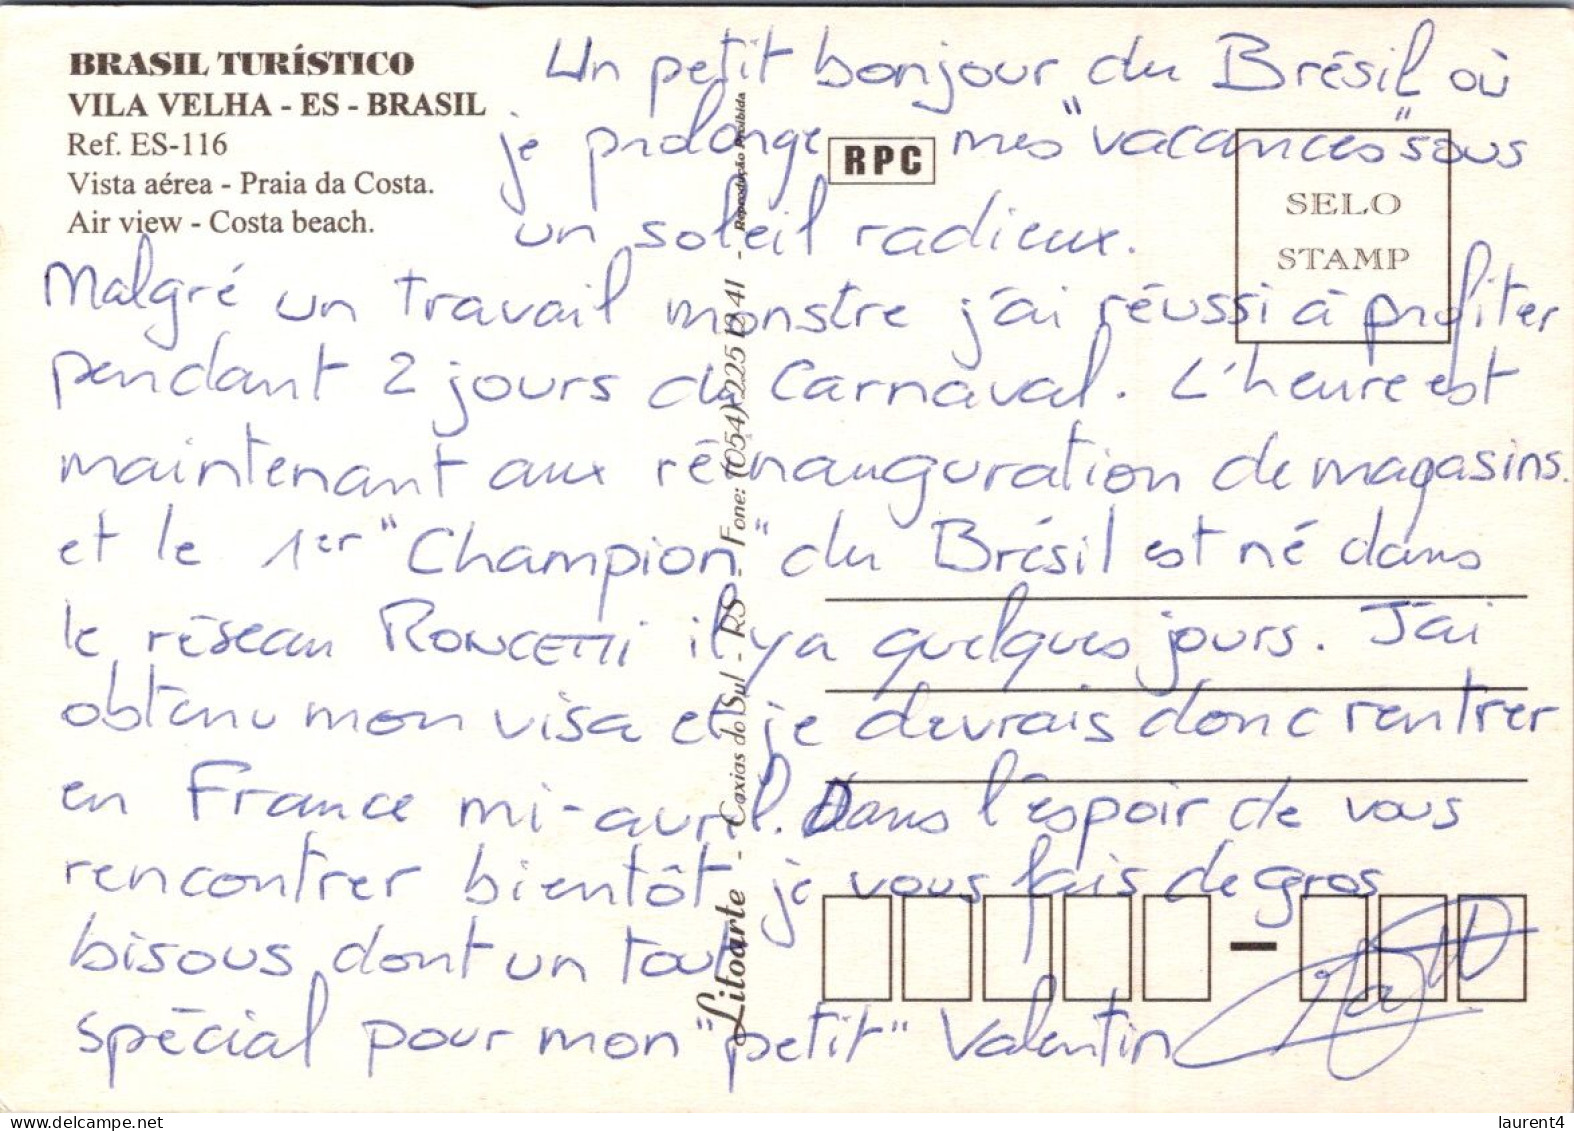 BRASIL TURÍSTICO
VILA VELHA - ES - BRASIL
Ref. ES-116
Vista aérea - Praia da Costa.
Air view - Costa beach.
Un petit bonjour du Brésil où
je prolonge mes "vacances" sous
un soleil radieux.
Malgré un travail monstre j'ai réussi à profiter
pendant 2 jours du Carnaval. L'heure est
maintenant aux réinauguration de magasins.
et le 1er "Champion" du Brésil est né dans
le réseau RONCETTI il y a quelques jours. J'ai
obtenu mon visa et je devrais donc rentrer
en France mi-avril. Dans l'espoir de vous
rencontrer bientôt je vous fais de gros
bisous dont un tout
spécial pour mon "petit" Valentin
RPC
SELO
STAMP
Litoarte - Caxias do Sul - RS - Fone: (054) 225 1241 - Reprodução Proibida
laurent4